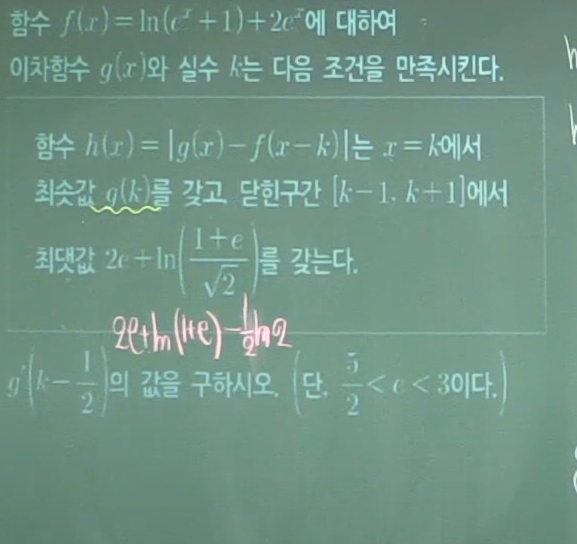 함수 f(x)=ln(eˣ+1)+2eˣ에 대하여
이차함수 g(x)와 실수 k는 다음 조건을 만족시킨다.
함수 h(x)=|g(x)-f(x-k)|는 x=k에서
최솟값 g(k)를 갖고, 닫힌구간 [k-1, k+1]에서
최댓값 2e+ln((1+e)/√2)를 갖는다.
2e+ln(1+e)-½ln2
g'(k-1/2)의 값을 구하시오. (단, 5/2<e<3이다.)